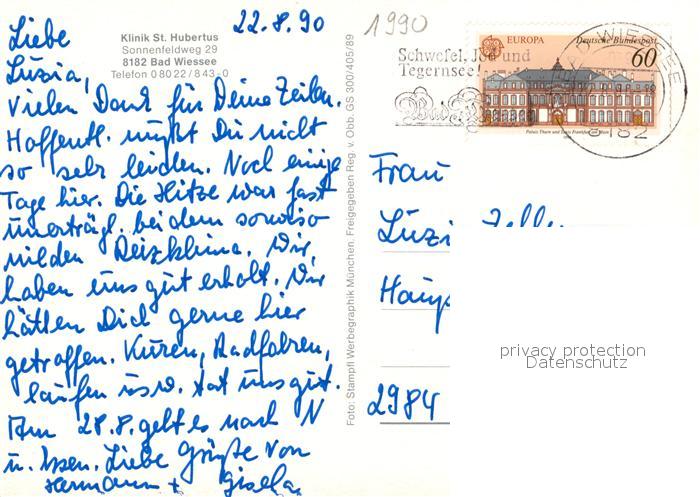 22.8.90
1990
Klinik St. Hubertus
Sonnenfeldweg 29
8182 Bad Wiessee
Telefon 0 80 22 / 8 43 - 0
Liebe
Luzia,
vielen Dank für Deine Zeilen.
Hoffentl. mußt Du nicht
so sehr leiden. Noch einige
Tage hier. Die Hitze war fast
unerträgl. bei dem sowieso
milden Reizklima. Wir
haben uns gut erholt. Wir
hätten Dich gerne hier
getroffen. Kuren, Radfahren,
laufen usw. tat uns gut.
Am 28.8. geht es nach N
u. Essen. Liebe Grüße von
Hermann + Gisela
Foto: Stampfl Werbegraphik München. Freigegeben Reg. v. Obb. GS 300/405/89
Schwefel, Jod und
Tegernsee!
Bad
EUROPA Deutsche Bundespost
60
Palais Thurn und Taxis Frankfurt am Main
WIESSEE
8182
Frau
Luzi
Haup
2984
privacy protection
Datenschutz